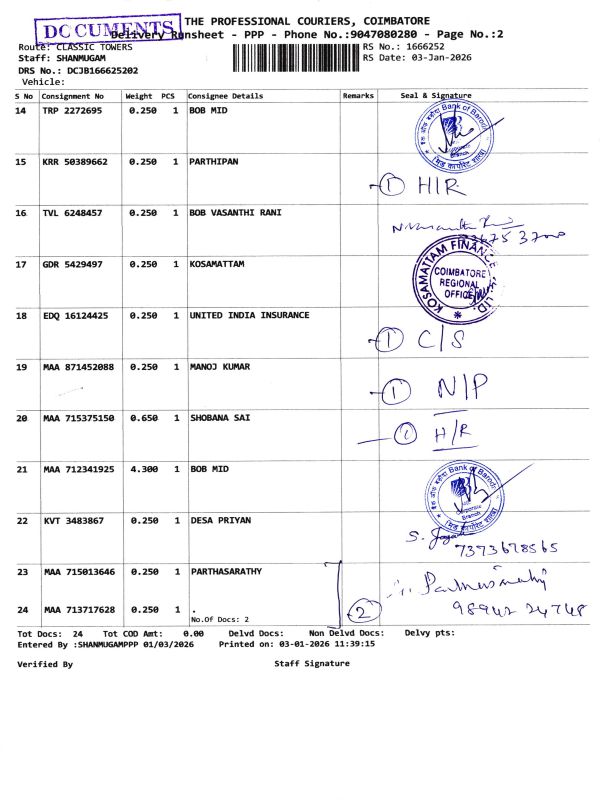 DOCUMENTS
THE PROFESSIONAL COURIERS, COIMBATORE
Delivery Runsheet - PPP - Phone No.:9047080280 - Page No.:2
Route: CLASSIC TOWERS
RS No.: 1666252
Staff: SHANMUGAM
RS Date: 03-Jan-2026
DRS No.: DCJB166625202
Vehicle:
S No Consignment No Weight PCS Consignee Details Remarks Seal & Signature
14 TRP 2272695 0.250 1 BOB MID
Bank of Baroda
Corporate
Branch
15 KRR 50389662 0.250 1 PARTHIPAN
1 H/R
16 TVL 6248457 0.250 1 BOB VASANTHI RANI
17 GDR 5429497 0.250 1 KOSAMATTAM
KOSAMATTAM FINANCE
LTD.
COIMBATORE
REGIONAL
OFFICE
18 EDQ 16124425 0.250 1 UNITED INDIA INSURANCE
1 C/S
19 MAA 871452088 0.250 1 MANOJ KUMAR
1 N/P
20 MAA 715375150 0.650 1 SHOBANA SAI
1 H/R
21 MAA 712341925 4.300 1 BOB MID
Bank of Baroda
Corporate
Branch
22 KVT 3483867 0.250 1 DESA PRIYAN
7373678565
23 MAA 715013646 0.250 1 PARTHASARATHY
24 MAA 713717628 0.250 1 .
No.Of Docs: 2
2
98942 24748
Tot Docs: 24 Tot COD Amt: 0.00 Delvd Docs: Non Delvd Docs: Delvy pts:
Entered By :SHANMUGAMPPP 01/03/2026 Printed on: 03-01-2026 11:39:15
Verified By Staff Signature